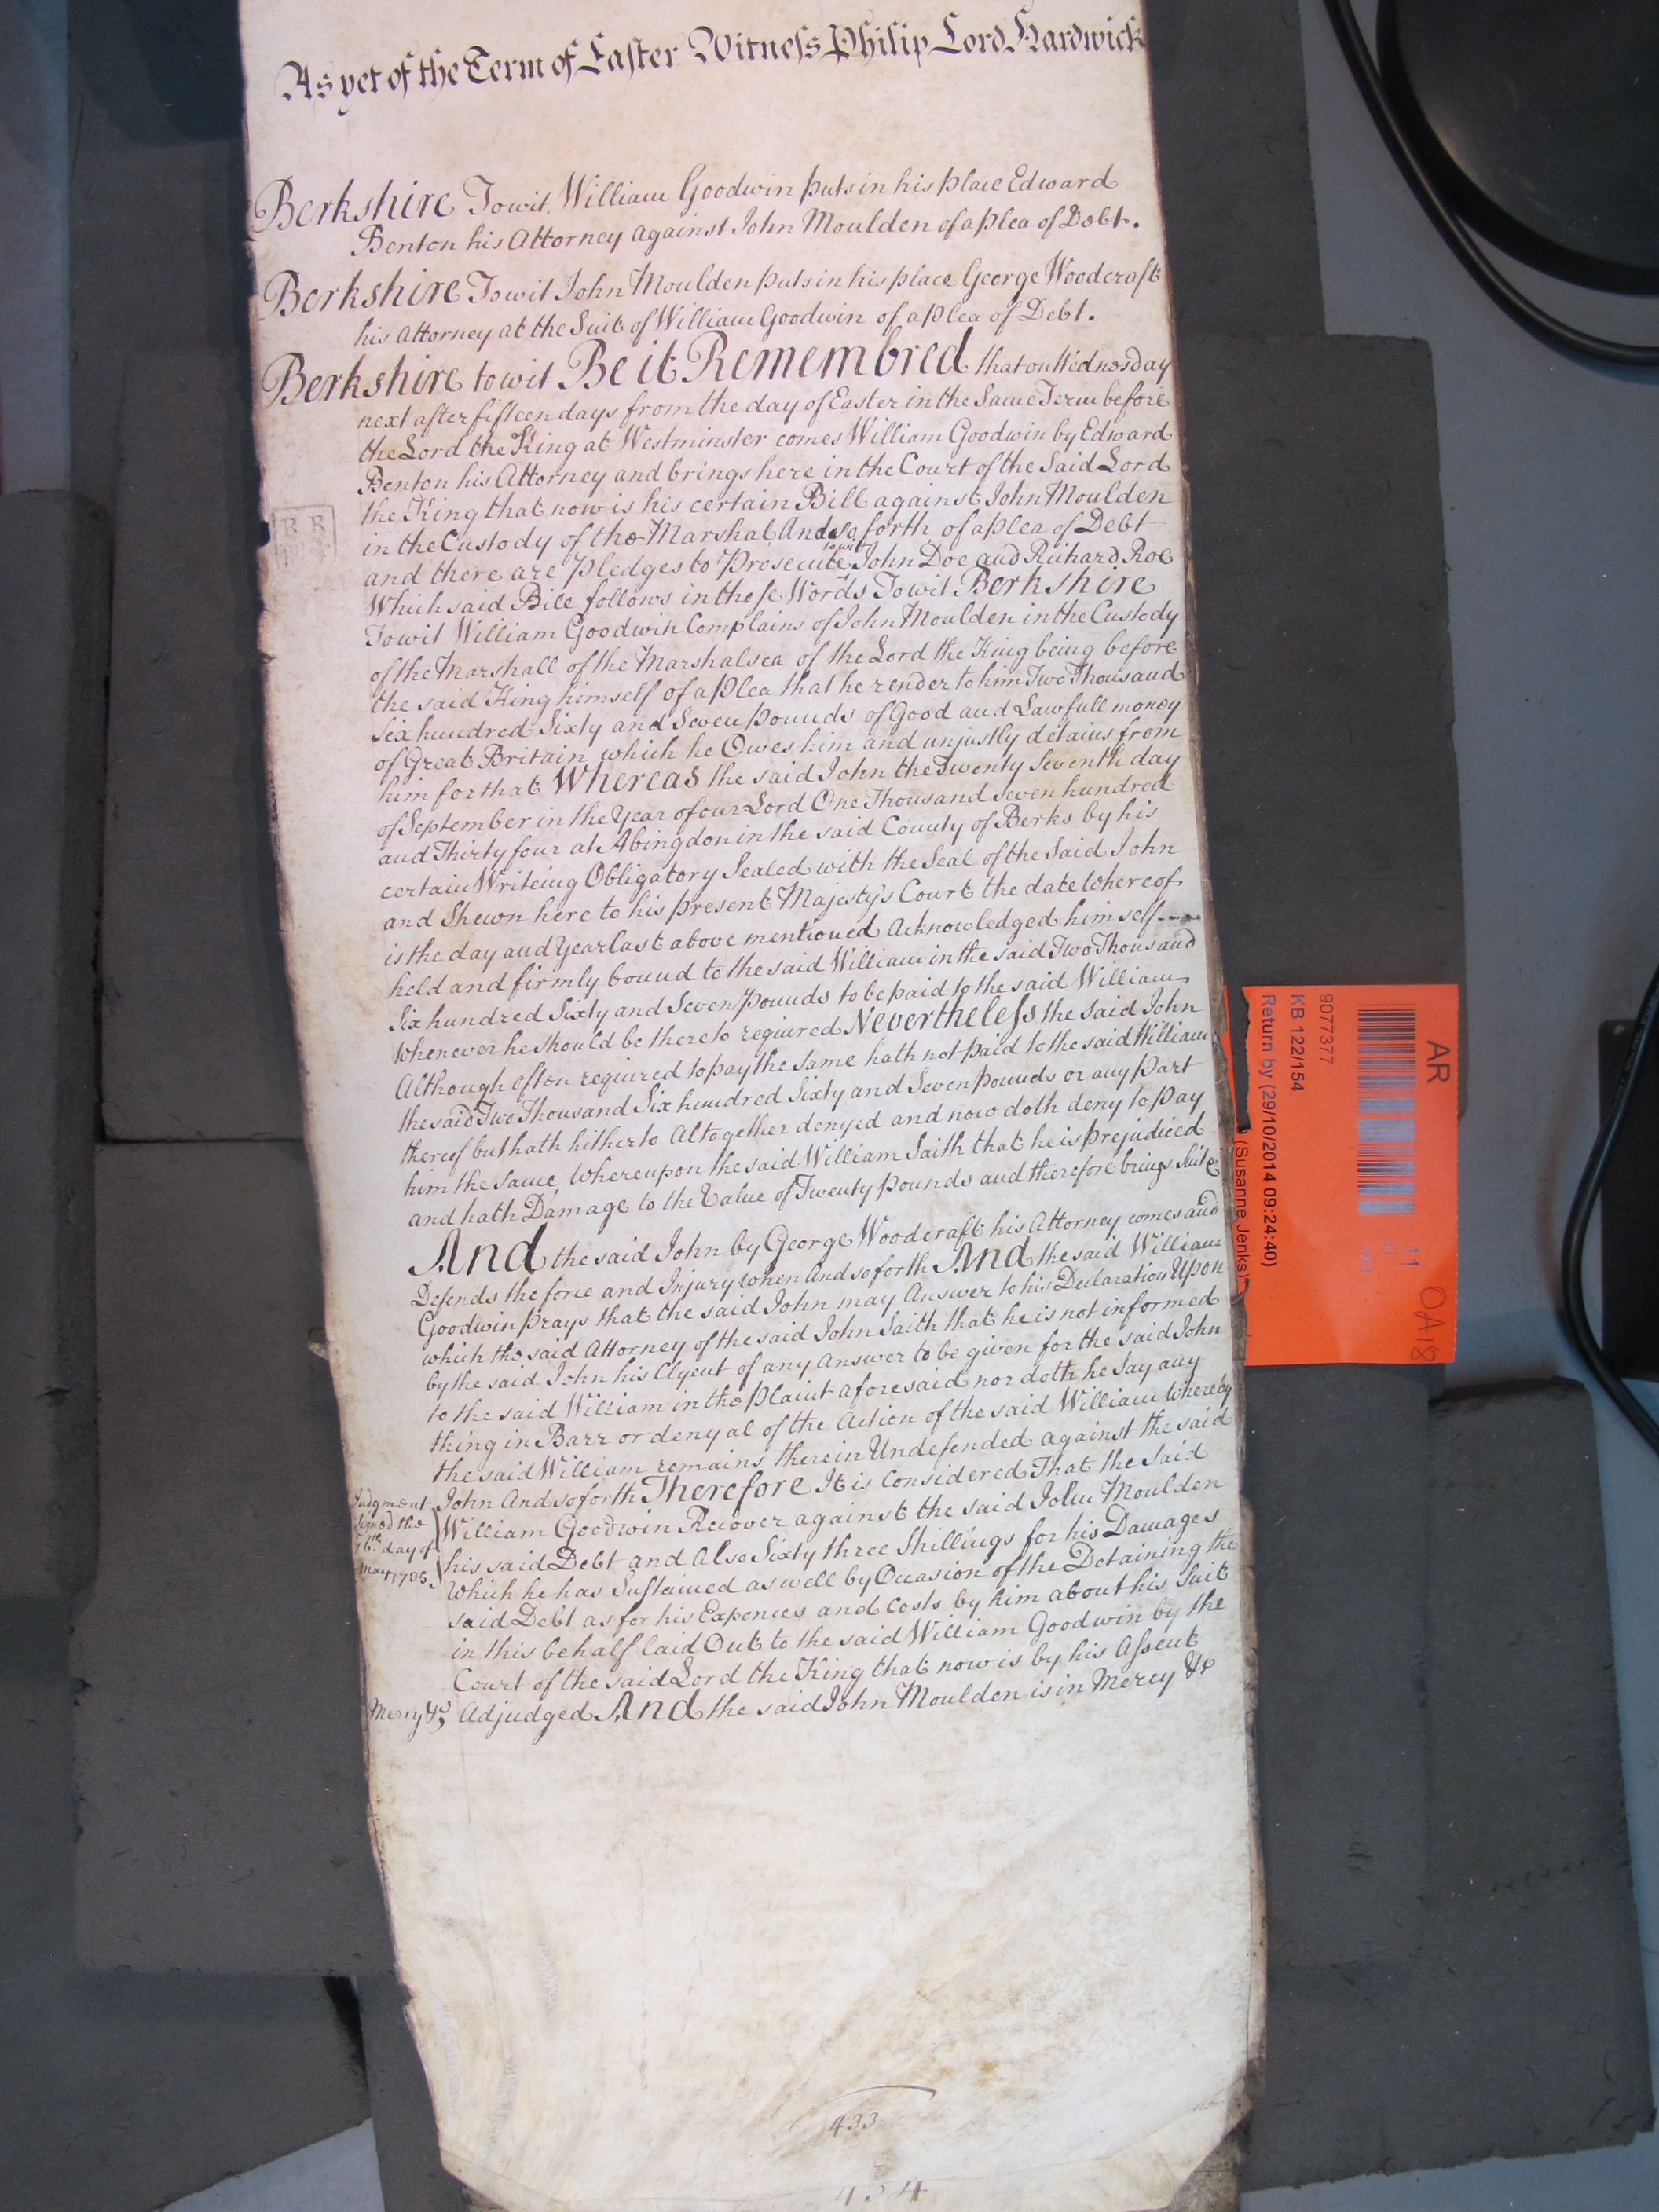 As yet of the Term of Easter Witness Philip Lord Hardwick
Berkshire Towit William Goodwin puts in his place Edward
Benton his Attorney against John Moulden of a plea of Debt.
Berkshire Towit John Moulden puts in his place George Woodcraft
his Attorney at the Suit of William Goodwin of a plea of Debt.
Berkshire to wit Be it Remembred that on Wednesday
next after fifteen days from the day of Easter in the Same Term before
the Lord the King at Westminster comes William Goodwin by Edward
Benton his Attorney and brings here in the Court of the Said Lord
the King that now is his certain Bill against John Moulden
in the Custody of the Marshal And so forth of a plea of Debt
and there are pledges to Prosecute towit John Doe and Richard Roe
Which said Bill follows in these Words Towit Berkshire
Towit William Goodwin Complains of John Moulden in the Custody
of the Marshall of the Marshalsea of the Lord the King being before
the said King himself of a plea that he render to him Two Thousand
Six hundred Sixty and Seven pounds of Good and Lawfull money
of Great Britain which he Owes him and unjustly detains from
him for that Whereas the said John the Twenty Seventh day
of September in the Year of our Lord One Thousand Seven hundred
and Thirty four at Abingdon in the said County of Berks by his
certain Writeing Obligatory Sealed with the Seal of the Said John
and Shewn here to his present Majesty's Court the date Whereof
is the day and Year last above mentioned Acknowledged himself
held and firmly bound to the said William in the said Two Thousand
Six hundred Sixty and Seven pounds to be paid to the said William
Whenever he should be thereto required Nevertheless the Said John
Although often required to pay the Same hath not paid to the said William
the said Two Thousand Six hundred Sixty and Seven pounds or any part
thereof but hath hitherto Altogether denyed and now doth deny to pay
him the Same Whereupon the said William Saith that he is prejudiced
and hath Damage to the Value of Twenty pounds and therefore brings Suit &c
And the said John by George Woodcraft his Attorney comes and
Defends the force and Injury when And so forth And the said William
Goodwin prays that the said John may Answer to his Declaration Upon
which the said Attorney of the said John Saith that he is not informed
by the said John his Clyent of any Answer to be given for the said John
to the said William in the plaint aforesaid nor doth he Say any
thing in Barr or denyal of the Action of the said William Whereby
the said William remains therein Undefended against the said
John And so forth Therefore It is Considered That the Said
William Goodwin Recover against the said John Moulden
his said Debt and Also Sixty three Shillings for his Damages
Which he has Sustained as well by Occasion of the Detaining the
said Debt as for his Expences and Costs by him about his Suit
in this behalf laid Out to the said William Goodwin by the
Court of the said Lord the King that now is by his Assent
Adjudged And the said John Moulden is in Mercy &c
Judgment
signed the
day of
May 1735
Mercy &c
433
434
AR
9077377
KB 122/154
Return by (29/10/2014 09:24:40)
(Susanne Jenks)
11
OA18